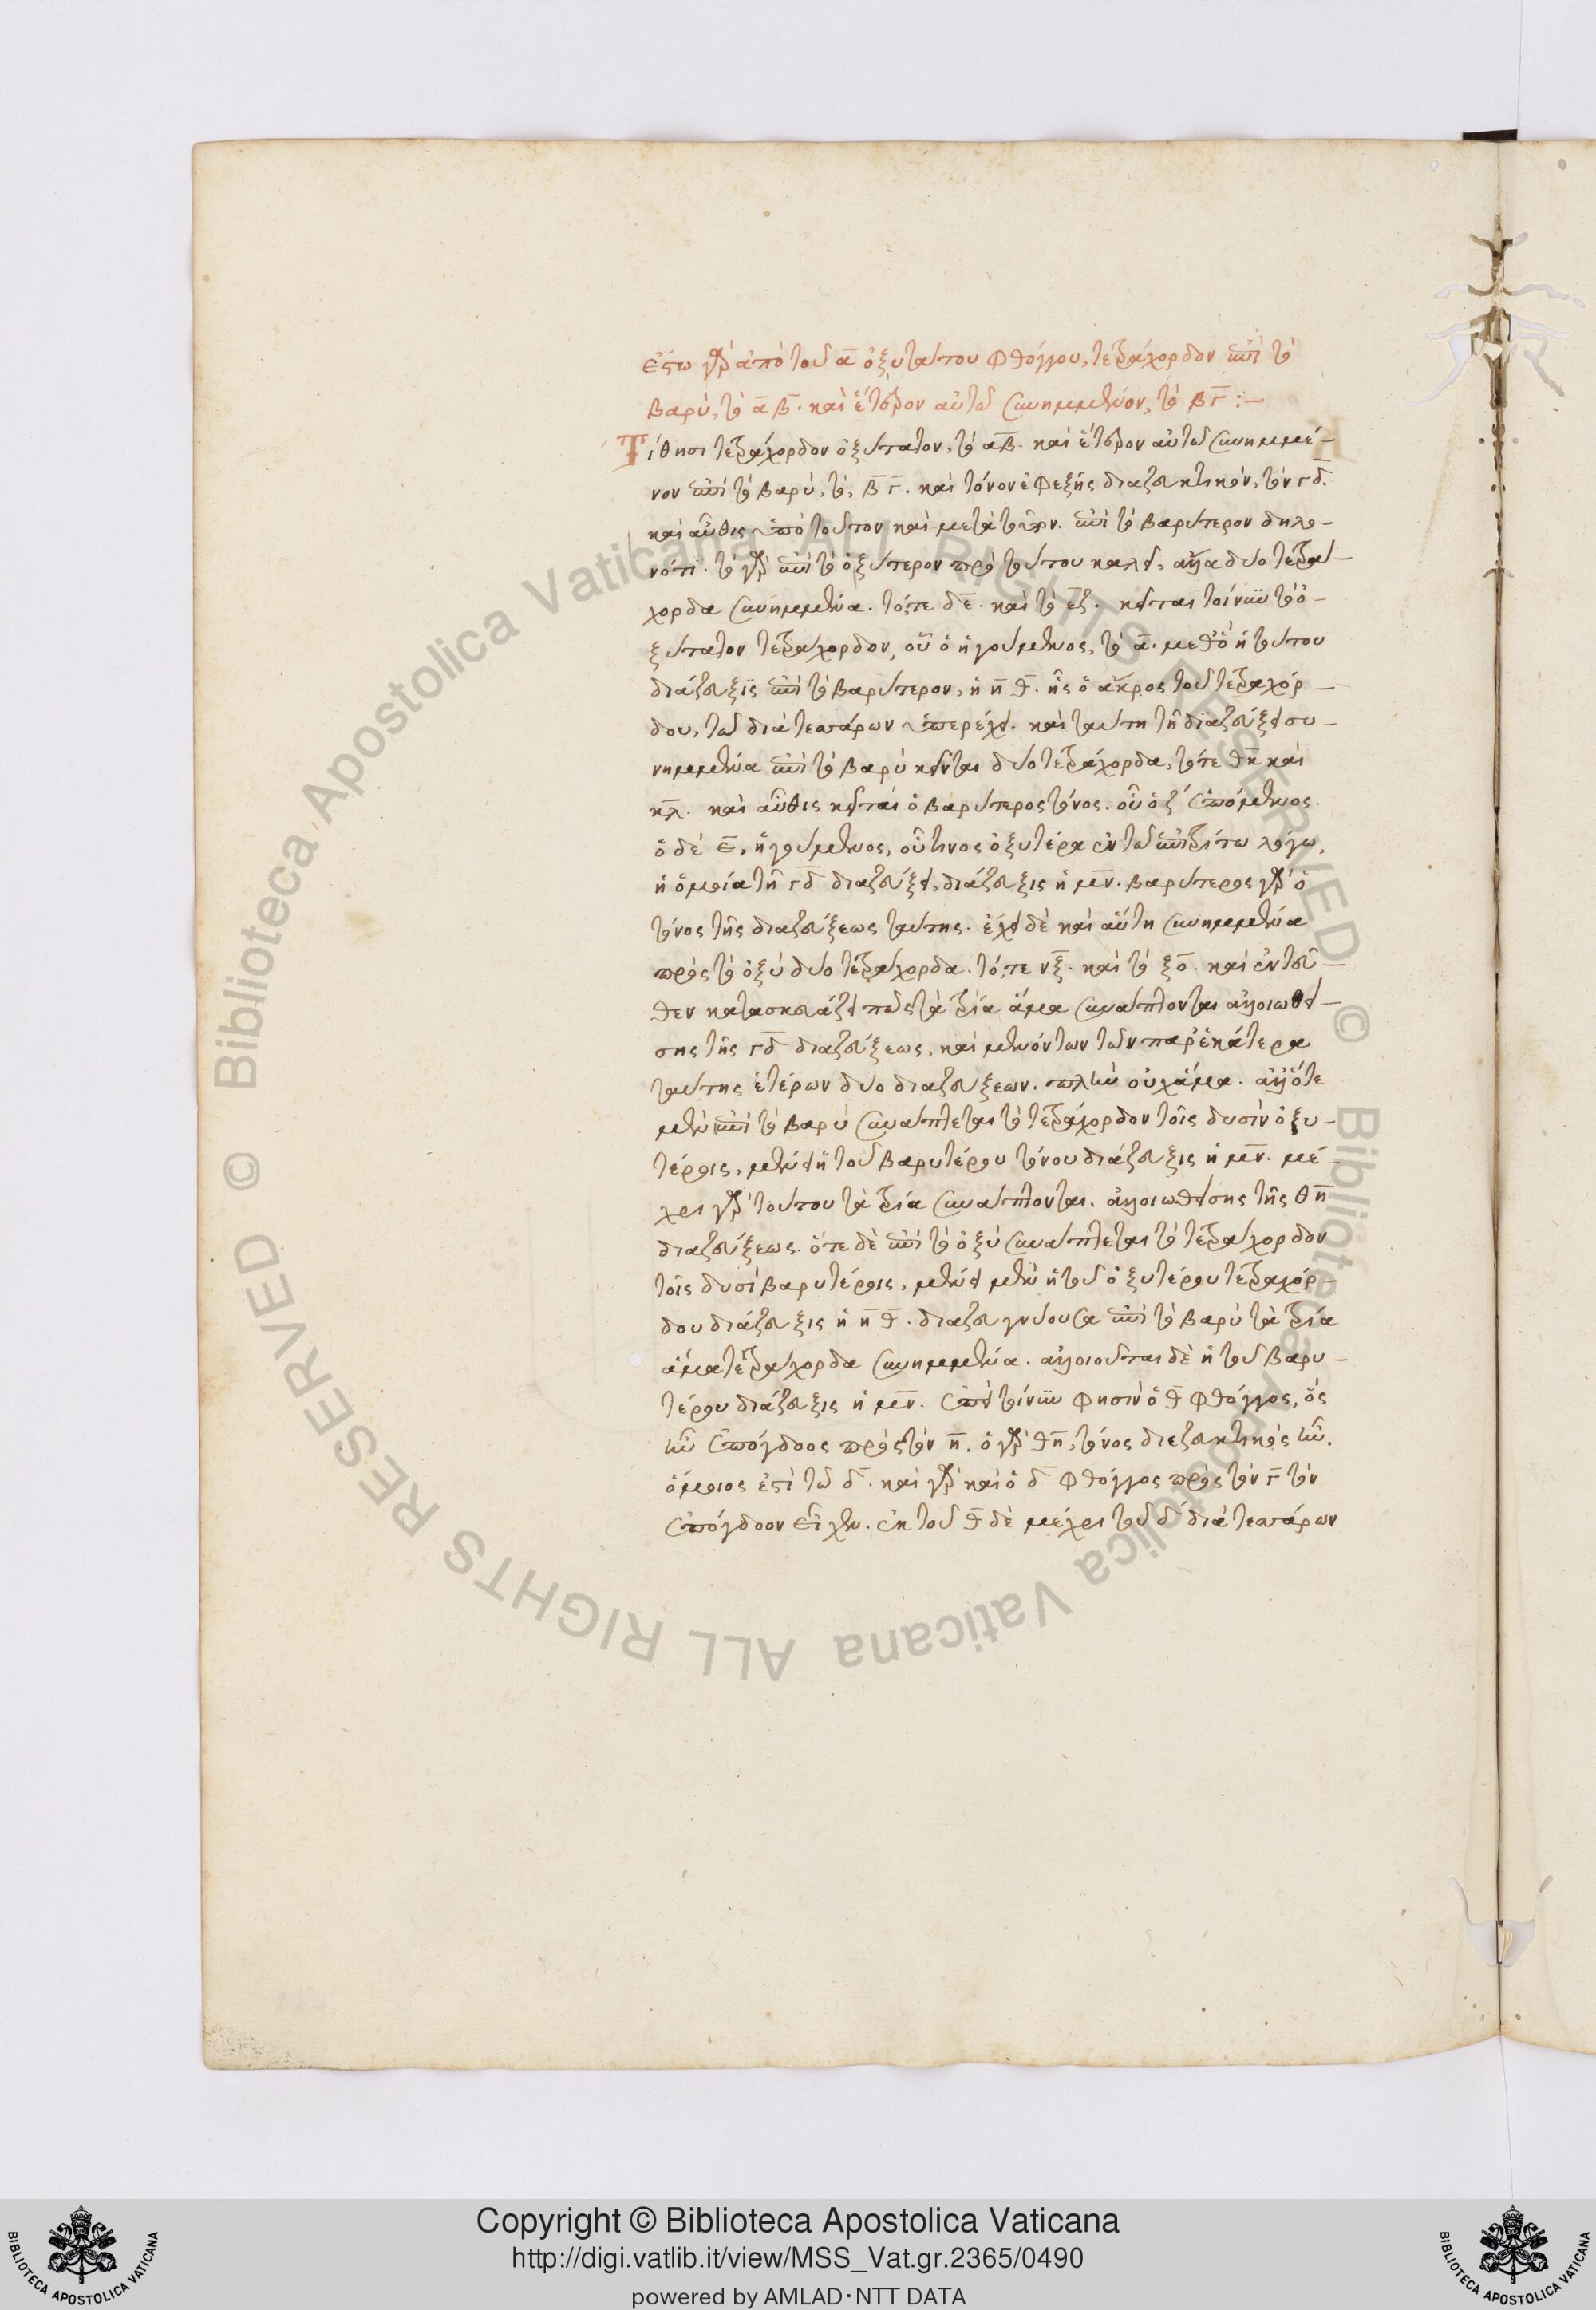 ἔστω γὰρ ἀπὸ τοῦ α ὀξυτάτου φθόγγου, τετράχορδον ἐπὶ τὸ
βαρὺ, τὸ α β. καὶ ἕτερον αὐτῶ συνημμένον, τὸ β γ :-
Τίθησι τετράχορδον ὀξύτατον, τὸ α β. καὶ ἕτερον αὐτῶ συνημμέ-
νον ἐπὶ τὸ βαρὺ, τὸ, β γ. καὶ τόνον ἐφεξῆς διαζευκτικὸν, τὸν γ δ.
καὶ αὖθις ὑπὸ τοῦτον καὶ μετὰ ἐπὶ τὸ βαρύτερον δηλο-
νότι. τὸ γὰρ ἐπὶ τὸ ὀξύτερον πρὸ τούτου καλεῖ, ἄλλα δύο τετρά-
χορδα συνημμένα. τό, τε δ ε. καὶ τὸ ε ζ. κεῖται τοίνυν τὸ ὀ-
ξύτατον τετράχορδον, οὗ ὁ ἡγούμενος, τὸ α. μεθ' ὃ ἡ τούτου
διάζευξις ἐπὶ τὸ βαρύτερον, ἡ η θ. ἧς ὁ ἄκρος τοῦ τετραχόρ-
δου, τῶ διὰ τεσσάρων ὑπερέχει. καὶ ταύτη τῆ διαζεύξει συ-
νημμένα ἐπὶ τὸ βαρὺ κεῖνται δύο τετράχορδα, τό τε θ κ καὶ
κ λ. καὶ αὖθις κεῖται ὁ βαρύτερος τόνος. οὗ ὁ ζ ἑπόμενος.
ὁ δὲ ε, ἡγούμενος, οὗτινος ὀξυτέρα ἐν τῶ ἐπιτρίτω λόγω,
ἡ ὁμοία τῆ γ δ διαζεύξει, διάζευξις ἡ μ ν. βαρύτερος γὰρ ὁ
τόνος τῆς διαζεύξεως ταύτης. ἔχει δὲ καὶ αὕτη συνημμένα
πρὸς τὸ ὀξὺ δύο τετράχορδα. τό, τε ν ξ. καὶ τὸ ξ ο. καὶ ἐντεῦ-
θεν κατασκευάζει πῶς τὰ τρία ἅμα συνάπτονται ἀλλοιωθεί-
σης τῆς γ δ διαζεύξεως, καὶ μενόντων τῶν παρ' ἑκάτερα
ταύτης ἑτέρων δύο διαζεύξεων. πλὴν οὐχ ἅμα. ἀλλ' ὅτε
μὲν ἐπὶ τὸ βαρὺ συνάπτεται τὸ τετράχορδον τοῖς δυσὶν ὀξυ-
τέροις, μένει ἡ τοῦ βαρυτέρου τόνου διάζευξις ἡ μ ν. μέ-
χρι γὰρ τούτου τὰ τρία συνάπτονται. ἀλλοιωθείσης τῆς θ η
διαζεύξεως. ὅτε δὲ ἐπὶ τὸ ὀξὺ συνάπτεται τὸ τετράχορδον
τοῖς δυσὶ βαρυτέροις, μένει μὲν ἡ τοῦ ὀξυτέρου τετραχόρ-
δου διάζευξις ἡ η θ. διαζευγνύουσα ἐπὶ τὸ βαρὺ τὰ τρία
ἅμα τετράχορδα συνημμένα. ἀλλοιοῦται δὲ ἡ τοῦ βαρυ-
τέρου διάζευξις ἡ μ ν. ἐπεὶ τοίνυν φησὶν ὁ θ φθόγγος, ὃς
ἦν ἐπόγδοος πρὸς τὸν η. ὁ γὰρ θ η, τόνος διεζευκτικὸς ἦν.
ὅμοιος ἐστὶ τῶ δ. καὶ γὰρ καὶ ὁ δ φθόγγος πρὸς τὸν γ τὸν
ἐπόγδοον εἶχεν. ἐκ τοῦ θ δὲ μέχρι τοῦ δ διὰ τεσσάρων
© Biblioteca Apostolica Vaticana ALL RIGHTS RESERVED © Biblioteca Apostolica Vaticana ALL RIGHTS RESERVED
Copyright © Biblioteca Apostolica Vaticana
http://digi.vatlib.it/view/MSS_Vat.gr.2365/0490
powered by AMLAD·NTT DATA
BIBLIOTECA APOSTOLICA VATICANA
BIBLIOTECA APOSTOLICA VATICANA